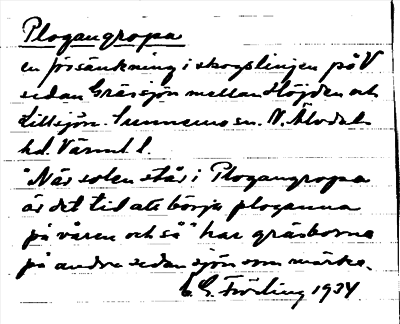 Plogangropa
en försänkning i skogslinjen på V
sidan Grässjön mellan Höjden och
Lillsjön. Sunnemo sn. N. Älvdals
hd. Värml l.
"När solen står i Plogangropa
är det tid att börja ploganna
på våren och så" har gräsborna
på andra sidan sjön som märke.
E. G. Fröding 1934